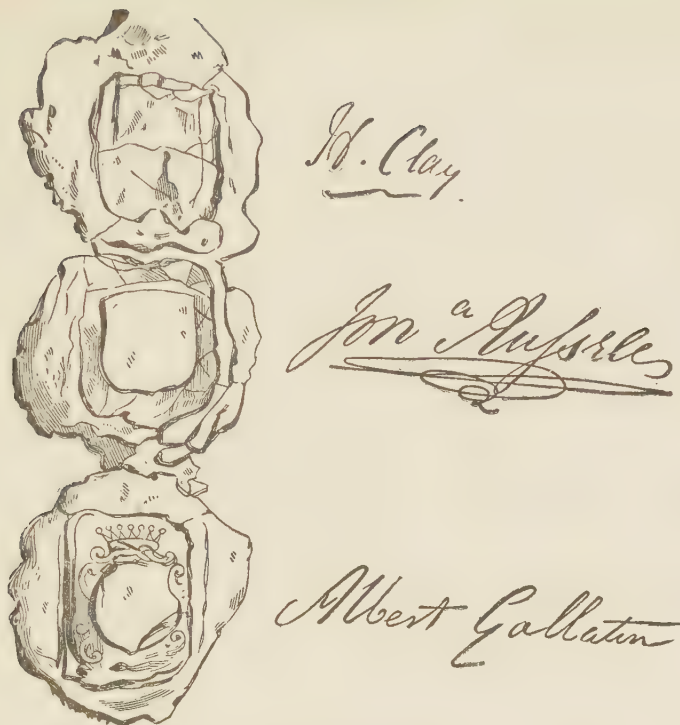 H. Clay.
Jon.a Russell
Albert Gallatin